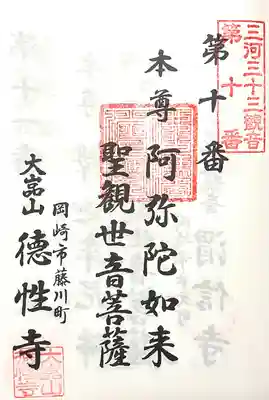 三河三十三観音
第十番
第十番
本尊 阿弥陀如来
聖観世音菩薩
岡崎市藤川町
徳性寺